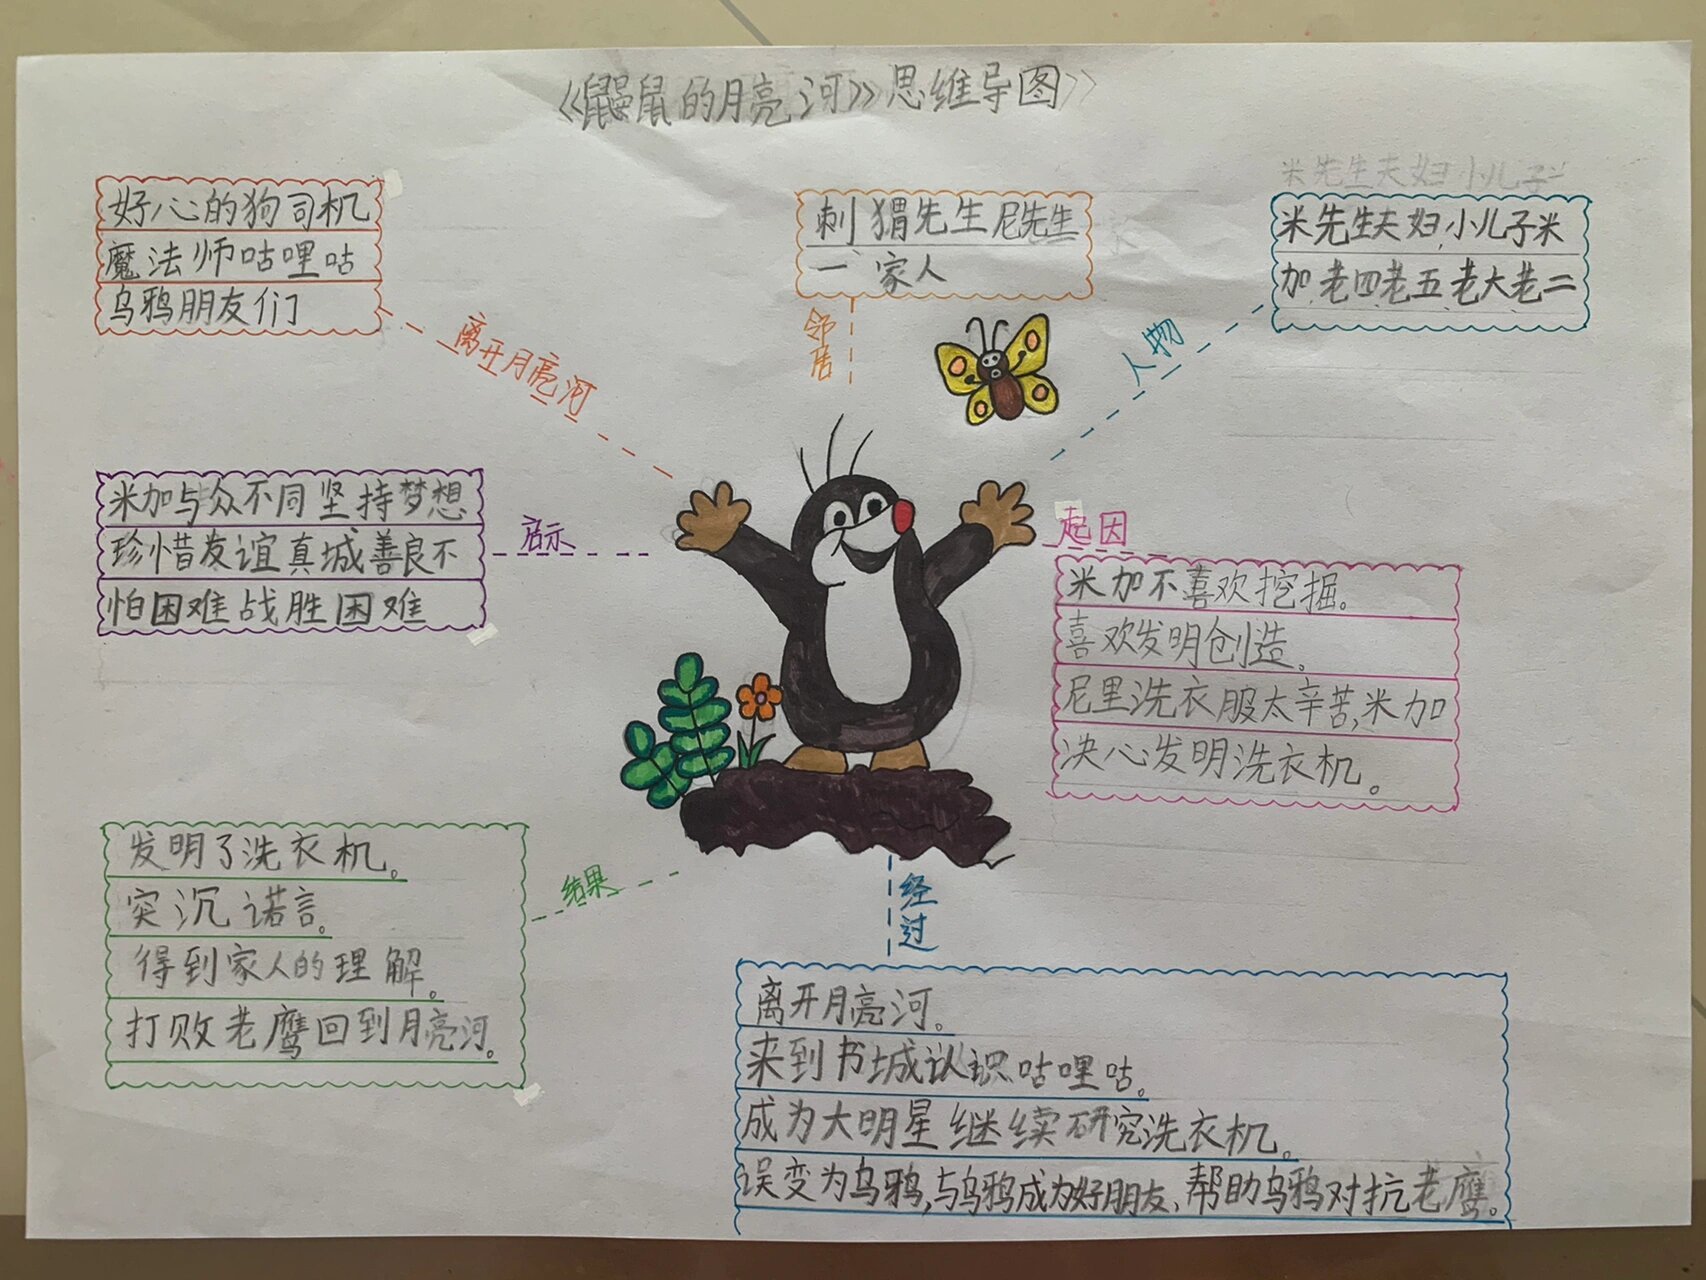 《鼹鼠的月亮河》思维导图》
好心的狗司机
魔法师咕哩咕
乌鸦朋友们
离开月亮河
刺猬先生尼先生
一家人
邻居
米先生夫妇小儿子米
米先生夫妇小儿子米
加老四老五老大老二
人物
米加与众不同坚持梦想
珍惜友谊真城善良不
怕困难战胜困难
启示
起因
米加不喜欢挖掘。
喜欢发明创造。
尼里洗衣服太辛苦,米加
决心发明洗衣机。
发明了洗衣机。
突沉诺言。
得到家人的理解。
打败老鹰回到月亮河。
结果
经过
离开月亮河。
来到书城认识咕哩咕。
成为大明星继续研究洗衣机。
误变为乌鸦,与乌鸦成为好朋友、帮助乌鸦对抗老鹰。